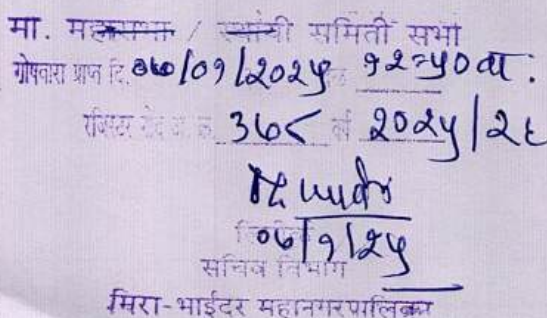 मा. महासभा / स्थायी समिती सभा
गोषवारा प्राप्त दि. ०७/०१/२०२५ वेळ १२=५० वा.
रजिस्टर नोंद अ. क्र. ३७८ वर्ष २०२५/२६
०७/१/२५
सचिव विभाग
मिरा-भाईंदर महानगरपालिका